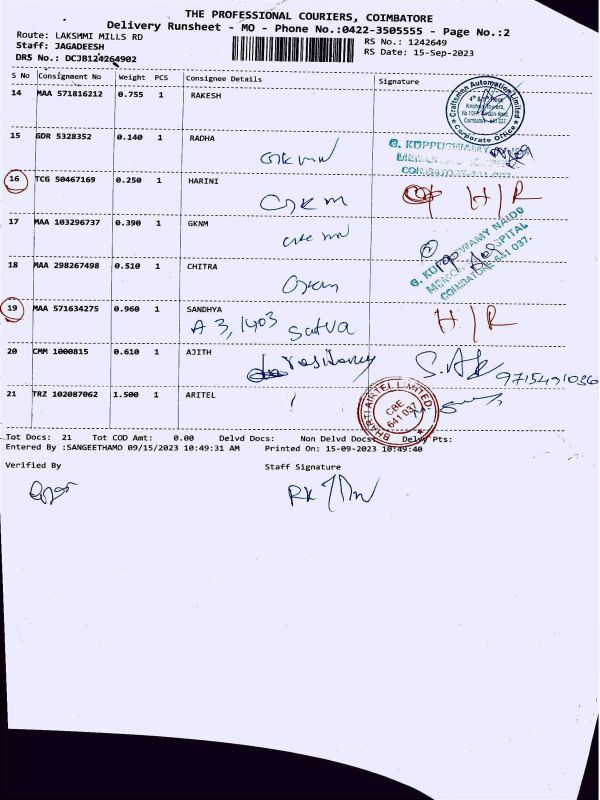 THE PROFESSIONAL COURIERS, COIMBATORE
Delivery Runsheet - MO - Phone No.:0422-3505555 - Page No.:2
Route: LAKSHMI MILLS RD
RS No.: 1242649
Staff: JAGADEESH
RS Date: 15-Sep-2023
DRS No.: DCJB124264902
S No Consignment No Weight PCS Consignee Details Signature
14 MAA 571816212 0.755 1 RAKESH
Craftsman Automation Limited
Corporate Office
15 GDR 5328352 0.140 1 RADHA
G. KUPPUSWAMY NAIDU
MEMORIAL HOSPITAL
COIMBATORE-641 037.
16 TCG 50467169 0.250 1 HARINI
GKNM H/R
17 MAA 103296737 0.390 1 GKNM
G. KUPPUSWAMY NAIDU
MEMORIAL HOSPITAL
COIMBATORE-641 037.
18 MAA 298267498 0.510 1 CHITRA
19 MAA 571634275 0.960 1 SANDHYA
A 3, 1403 Satva H/R
20 CMM 1000815 0.610 1 AJITH
residency 9715491036
21 TRZ 102087062 1.500 1 ARITEL
BHARTI AIRTEL LIMITED
CBE
641 037
Tot Docs: 21 Tot COD Amt: 0.00 Delvd Docs: Non Delvd Docs: Delvy Pts:
Entered By :SANGEETHAMO 09/15/2023 10:49:31 AM Printed On: 15-09-2023 10:49:40
Verified By Staff Signature